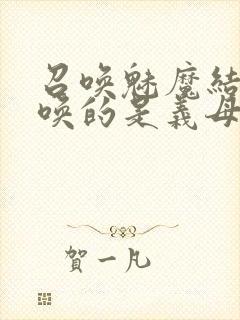 召唤魅魔结
唤的是義母
賀一凡